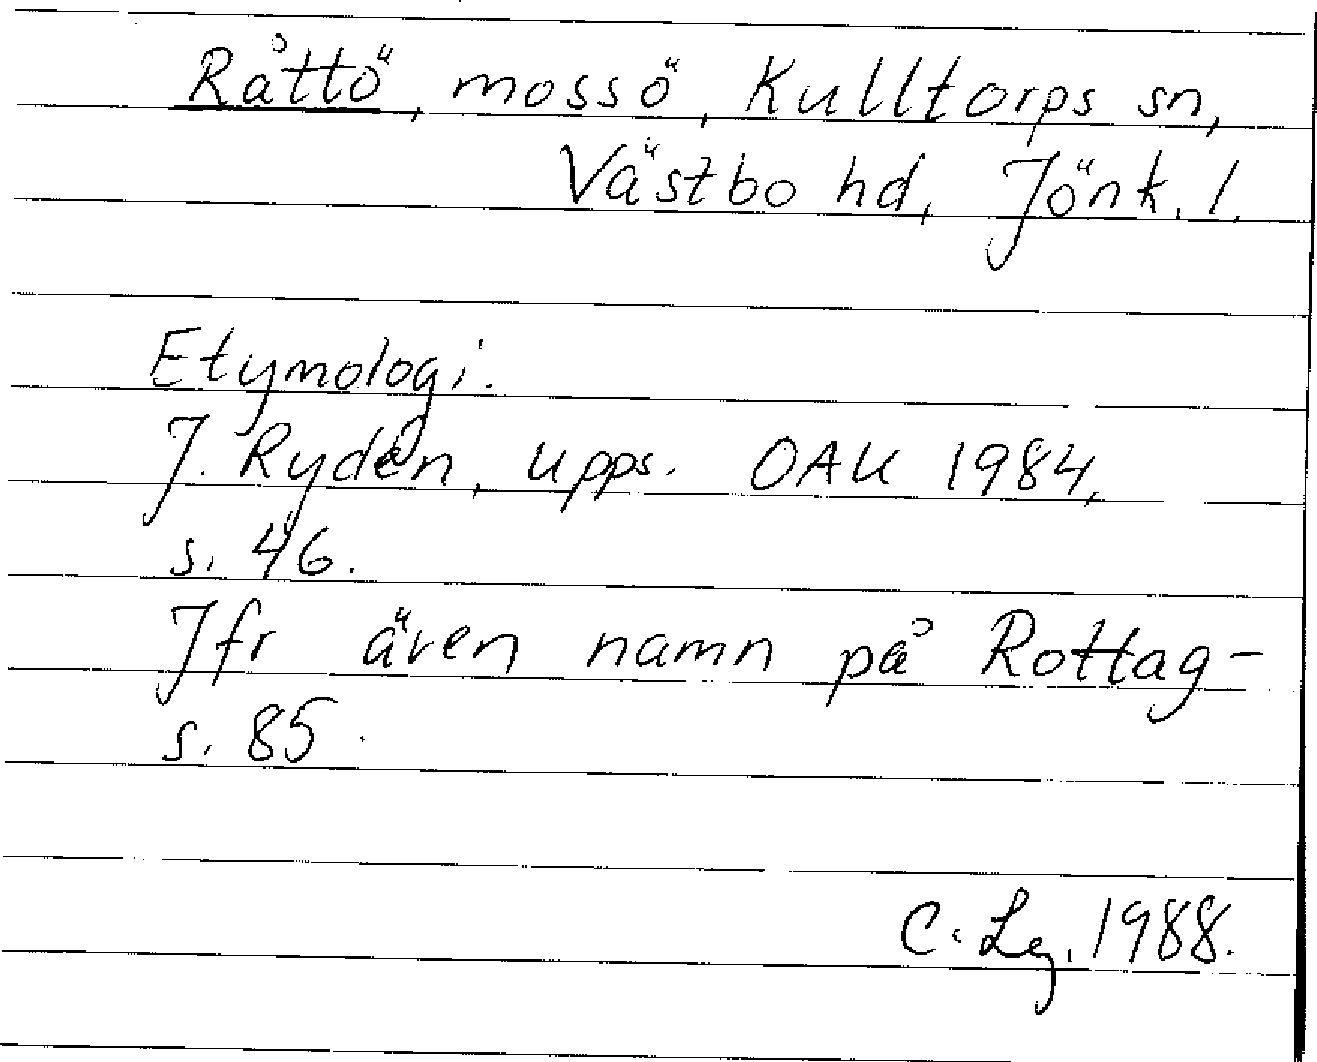 Råttö, mossö, Kulltorps sn,
Västbo hd, Jönk. l.
Etymologi:
J. Rydén, upps. OAU 1984,
s. 46.
Jfr även namn på Rottag-
s. 85.
C. Lg. 1988.